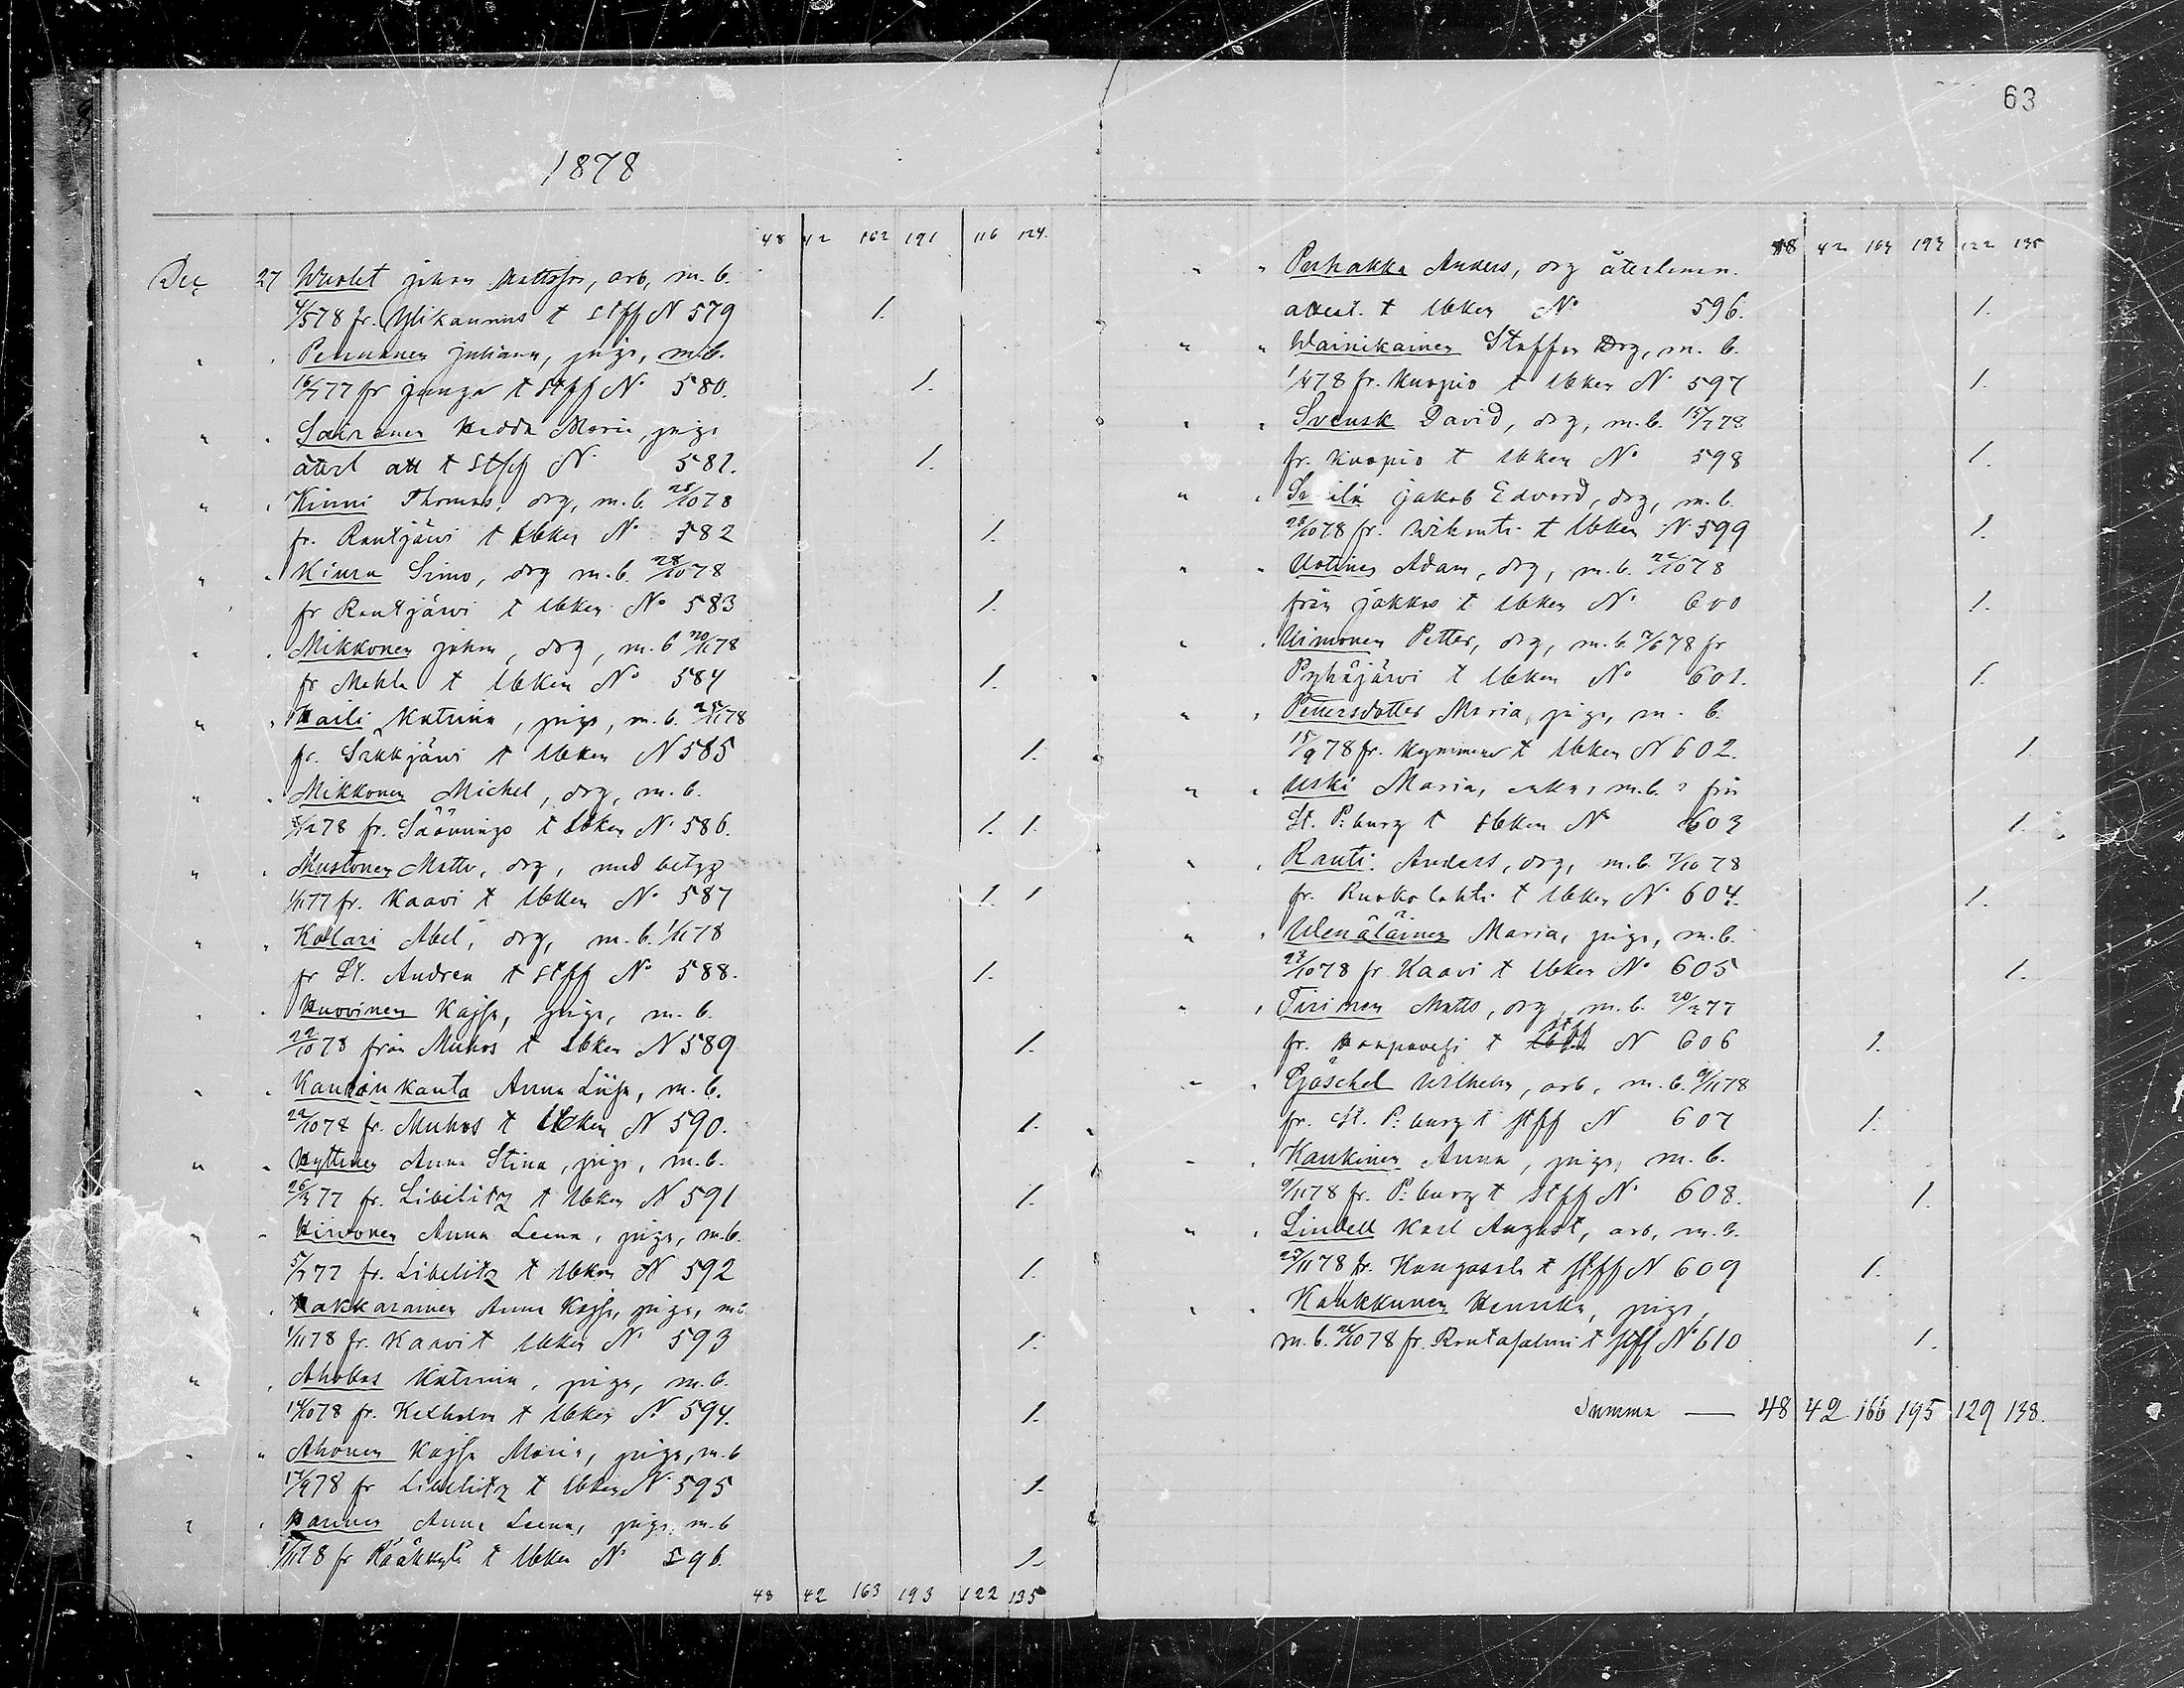 63
1878
48 42 162 191 116 124.
Dec 27 Wuolet Johan Mattsson, arb, m. b.
4/5 78 fr. Ylikannus t stff N 579 1.
" " Pennanen Juliana, piga, m. b.
16/7 77 fr Jorois t stff No 580. 1.
" " Sairanen Hedda Maria, piga
återl att t stff N 581. 1.
" " Kinni Thomas, drg, m. b. 28/10 78
fr. Rautjärvi t Ubken No 582 1.
" " Kiuru Simo, drg m. b. 28/10 78
fr Rautjärvi t Ubken No 583 1.
" " Mikkonen Johan, drg, m. b 20/11 78
fr Mohla t Ubken No 584 1.
" " Haili Katrina, piga, m. b. 25/11 78
fr. Säkkjärvi t Ubken N 585 1.
" " Mikkonen Michel, drg, m. b.
8/12 78 fr. Sääminge t Ubken No 586. 1. 1.
" " Mustonen Matts, drg, med betyg
1/11 77 fr. Kaavi t Ubken No 587 1. 1
" " Kalari Abel, drg, m. b. 1/11 78
fr St. Andrea t stff No 588. 1.
" " Huovinen Kajsa, piga, m. b.
22/10 78 från Muhos t Ubken N 589 1.
" " Kauninkanta Anna Liisa, m. b.
22/10 78 fr. Muhos t Ubken N 590. 1.
" " Hyttinen Anna Stina, piga, m. b.
26/3 77 fr. Libelitz t Ubken N 591 1.
" " Hirvonen Anna Leena, piga, m. b.
5/7 77 fr. Libelitz t Ubken N 592 1.
" " Hakkarainen Anna Kajsa, piga, m b.
1/11 78 fr. Kaavi t Ubken No 593 1.
" " Ahokas Katrina, piga, m. b.
14/10 78 fr. Kexholm t Ubken No 594. 1.
" " Ahonen Kajsa Maria, piga, m. b
17/9 78 fr Libelitz t Ubken No 595 1.
" " Harinen Anna Leena, piga, m. b
1/11 78 fr Rääkkylä t Ubken No 596. 1.
48 42 163 193 122 135
48 42 163 193 122 135
" " Purhakka Anders, drg återlemn.
attest. t Ubken No 596. 1.
" " Wainikainen Staffan Drg, m. b.
1/4 78 fr. Kuopio t Ubken No 597 1.
" " Svensk David, drg, m. b. 15/7 78
fr. Kuopio t Ubken No 598 1.
" " Jakob Edvard, drg, m. b.
28/10 78 fr. Wihanti t Ubken N. 599 1.
" " Uotinen Adam, drg, m. b. 22/10 78
från Jokkas t Ubken No 600 1.
" " Uimonen Petter, drg, m. b. 7/6 78 fr
Pyhäjärvi t Ubken No 601. 1.
" " Pettersdotter Maria, piga, m. b.
15/9 78 fr. Kymmene t Ubken N 602. 1.
" " Uski Maria, enka, m. b. ? från
St. P:burg t Ubken No 603 1.
" " Rauti Anders, drg, m. b. 7/10 78
fr. Ruokolahti t Ubken No 604. 1.
" " Wenäläinen Maria, piga, m. b.
27/10 78 fr. Kaavi t Ubken No 605 1.
" " Tirinen Matts, drg, m. b. 20/3 77
fr. Haapavesi t stff N 606 1.
" " Göschel Wilhelm, arb, m. b. 9/11 78
fr. St. P:burg t stff N 607 1.
" " Kaukinen Anna, piga, m. b.
9/11 78 fr. P:burg t stff No 608. 1.
" " Lindell Karl August, arb, m. b.
23/11 78 fr. Kangasala t stff N 609 1.
" " Koukkunen Henrika, piga,
m. b. 22/10 78 fr. Rantasalmi t stff No 610 1.
Summa — 48 42 166 195 129 138.